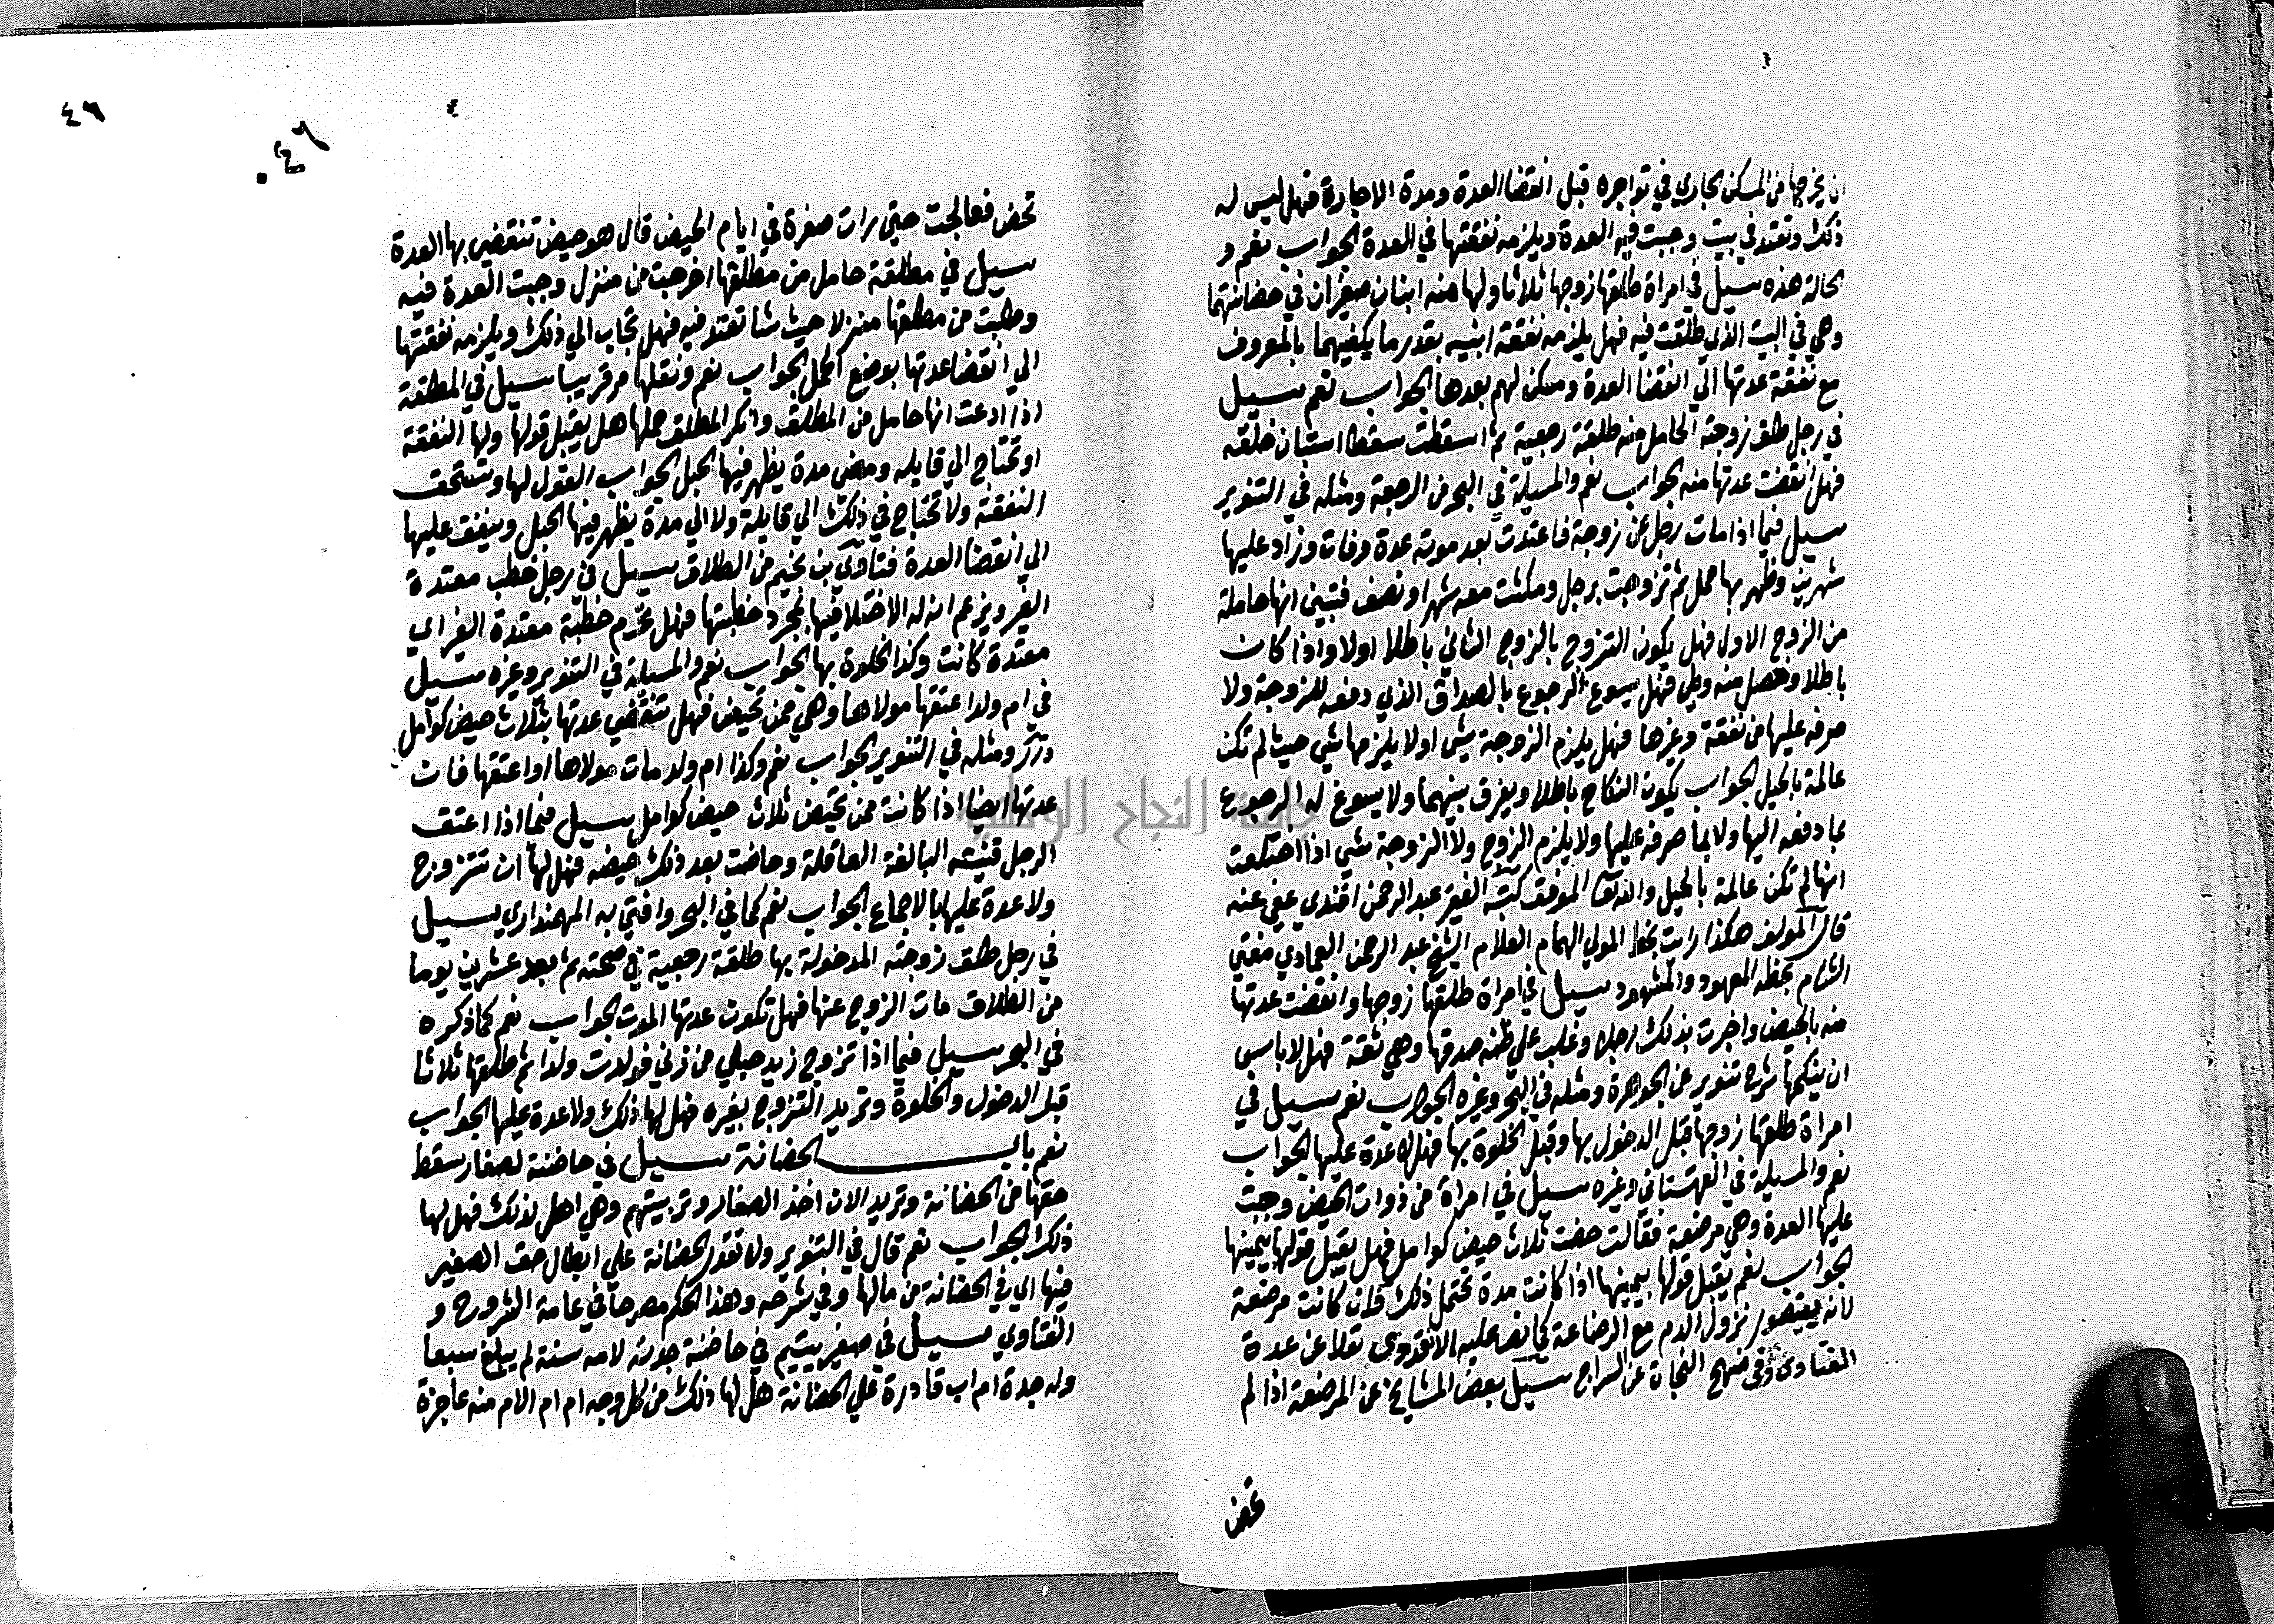 ان يخرجها من المسكن الجاري في تواجره قبل انقضا العدة ومدة الاجارة فهل ليس له
ذلك وتعتد في بيت وجبت فيه العدة ويلزمه نفقتها في العدة الجواب نعم و
الحالة هذه سيل في امراة طلقها زوجها ثلاثا ولها منه ابنان صغيران في حضانتها
وهي في البيت الذي طلقت فيه فهل يلزمه نفقة ابنيه بقدر ما يكفيهما بالمعروف
مع نفقة عدتها الي انقضا العدة ومسكن لهم بعدها الجواب نعم سيل
في رجل طلق زوجته الحامل منه طلقة رجعية ثم اسقطت سقطا استبان خلقه
فهل انقضت عدتها منه الجواب نعم والمسيلة في البحر من الرجعة ومثله في التنوير
سيل فيما اذا مات رجل عن زوجة فاعتدت بعد موته عدة وفات وزاد عليها
شهرين وظهر بها حمل ثم تزوجت برجل ومكثت معه شهرا ونصف فتبين انها حاملة
من الزوج الاول فهل يكون التزوج بالزوج الثاني باطلا اولا واذا كان
باطلا وحصل منه وطي فهل يسوع الرجوع بالصداق الذي دفعه للزوجة ولا
صرفه عليها من نفقة وغيرها فهل يلزم الزوجة شي اولا يلزمها شي حيث لم تكن
عالمة بالحبل الجواب يكون النكاح باطلا ويفرق بينهما ولا يسوغ له الرجوع
بما دفعه اليها ولا بما صرفه عليها ولا يلزم الزوج ولا الزوجة شي اذا
انها لم تكن عالمة بالحبل والله تعالى الموفق كتبه الفقير عبد الرحمن افندي عفي عنه
قال المولف هكذا رايت بخط المولي الهمام العلام الشيخ عبد الرحمن العمادي مفتي
الشام بخطه المعهود والمشهود سيل في امراة طلقها زوجها وانقضت عدتها
منه بالحيض واخبرت بذلك رجلا وغلب علي ظنه صدقها وهي ثقة فهل لا باس
ان ينكحها شرح تنوير عن الجوهرة ومثله في البحر وغيره الجواب نعم سيل في
امراة طلقها زوجها قبل الدخول بها وقبل الخلوة بها فهل لا عدة عليها الجواب
نعم والمسيلة في القهستاني وغيره سيل في امراة من ذوات الحيض وجبت
عليها العدة وهي مرضعة فقالت حضت ثلاث حيض كوامل فهل يقبل قولها بيمينها
الجواب نعم يقبل قولها بيمينها اذا كانت مدة تحتمل ذلك وان كانت مرضعة
لانه يتصور نزول الدم مع الرضاعة كما نص عليه الانقروي نقلا عن عدة
الفتاوي وفي منهج النجاة عن السراج سيل بعض المشايخ عن المرضعة اذا لم
تحض
٤٦
٠٤٦
تحض فعالجت حتي رات صفرة في ايام الحيض قال هو حيض تنقضي بها العدة
سيل في مطلقة حامل من مطلقها اخرجت من منزل وجبت العدة فيه
وطلبت من مطلقها منزلا حيث شا تعتد فيه فهل تجاب الي ذلك ويلزمه نفقتها
الي انقضا عدتها بوضع الحمل الجواب نعم ونقلها مر قريبا سيل في المطلقة
اذا ادعت انها حامل من المطلق وانكر المطلق حملها هل يقبل قولها ولها النفقة
او تحتاج الي قابله ومضي مدة يظهر فيها الحبل الجواب القول لها وتستحق
النفقة ولا تحتاج في ذلك الي قابلة ولا الي مدة يظهر فيها الحبل وينفق عليها
الي انقضا العدة فتاوي بن نجيم من الطلاق سيل في رجل خطب معتدة
الغير ويزعم ان له الاختلا فيها بمجرد خطبتها فهل تحرم خطبة معتدة الغير اي
معتدة كانت وكذا الخلوة بها الجواب نعم والمسيلة في التنوير وغيره سيل
في ام ولد اعتقها مولاها وهي ممن تحيض فهل تنقضي عدتها بثلاث حيض كوامل
درر ومثله في التنوير الجواب نعم وكذا ام ولد مات مولاها او اعتقها فان
عدتها ايضا اذا كانت ممن تحيض ثلاث حيض كوامل سيل فيما اذا اعتق
الرجل قنيته البالغة العاقلة وحاضت بعد ذلك حيضه فهل لها ان تتزوج
ولا عدة عليها بالاجماع الجواب نعم كما في البحر وافتي به المهنداري سيل
في رجل طلق زوجته المدخولة بها طلقة رجعية في صحته ثم بعد عشرين يوما
من الطلاق مات الزوج عنها فهل تكون عدتها الموت الجواب نعم كما ذكره
في البحر سيل فيما اذا تزوج زيد حبلي من زني فولدت ولدا ثم طلقها ثلاثا
قبل الدخول والخلوة وتريد التزوج بغيره فهل لها ذلك ولا عدة عليها الجواب
نعم باب الحضانة سيل في حاضنة لصغار سقط
حقها من الحضانة وتريد الان اخذ الصغار وتربيتهم وهي اهل لذلك فهل لها
ذلك الجواب نعم قال في التنوير ولا تقدر الحضانة علي ابطال حق الصغير
فيها اي في الحضانة من مالها وفي شرحه وهذا الحكم مصرحا في عامة الشروح و
الفتاوي سيل في صغير يتيم في حاضنة جدته لامه سنه لم يبلغ سبعا
وله جدة ام اب قادرة علي الحضانة هل لها ذلك من كل وجه ام ام الام منه عاجزة
جامعة النجاح الوطنية